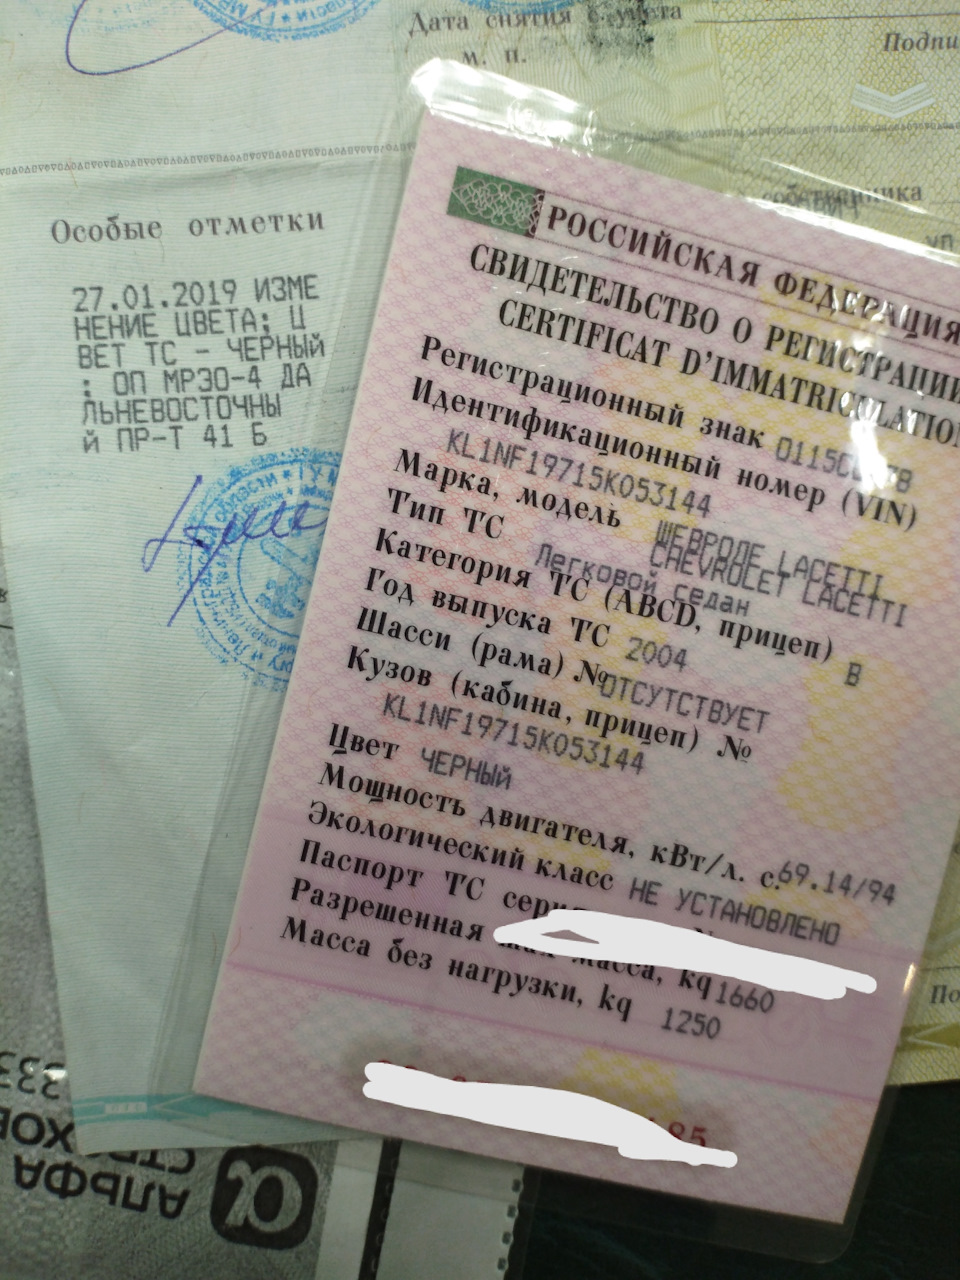 Дата снятия с учета
м. п.
Подпи
собственника
Особые отметки
27.01.2019 ИЗМЕ
НЕНИЕ ЦВЕТА; Ц
ВЕТ ТС - ЧЕРНЫЙ
; ОП МРЭО-4 ДА
ЛЬНЕВОСТОЧНЫ
Й ПР-Т 41 Б
РОССИЙСКАЯ ФЕДЕРАЦИЯ
СВИДЕТЕЛЬСТВО О РЕГИСТРАЦИИ
CERTIFICAT D'IMMATRICULATION
Регистрационный знак
Идентификационный номер (VIN)
KL1NF19715K053144
Марка, модель ШЕВРОЛЕ LACETTI
CHEVROLET LACETTI
Тип ТС Легковой седан
Категория ТС (ABCD, прицеп) B
Год выпуска ТС 2004
Шасси (рама) № ОТСУТСТВУЕТ
Кузов (кабина, прицеп) №
KL1NF19715K053144
Цвет ЧЕРНЫЙ
Мощность двигателя, кВт/л. с. 69.14/94
Экологический класс НЕ УСТАНОВЛЕНО
Паспорт ТС
Разрешенная масса, kq 1660
Масса без нагрузки, kq 1250
По
АЛЬФА